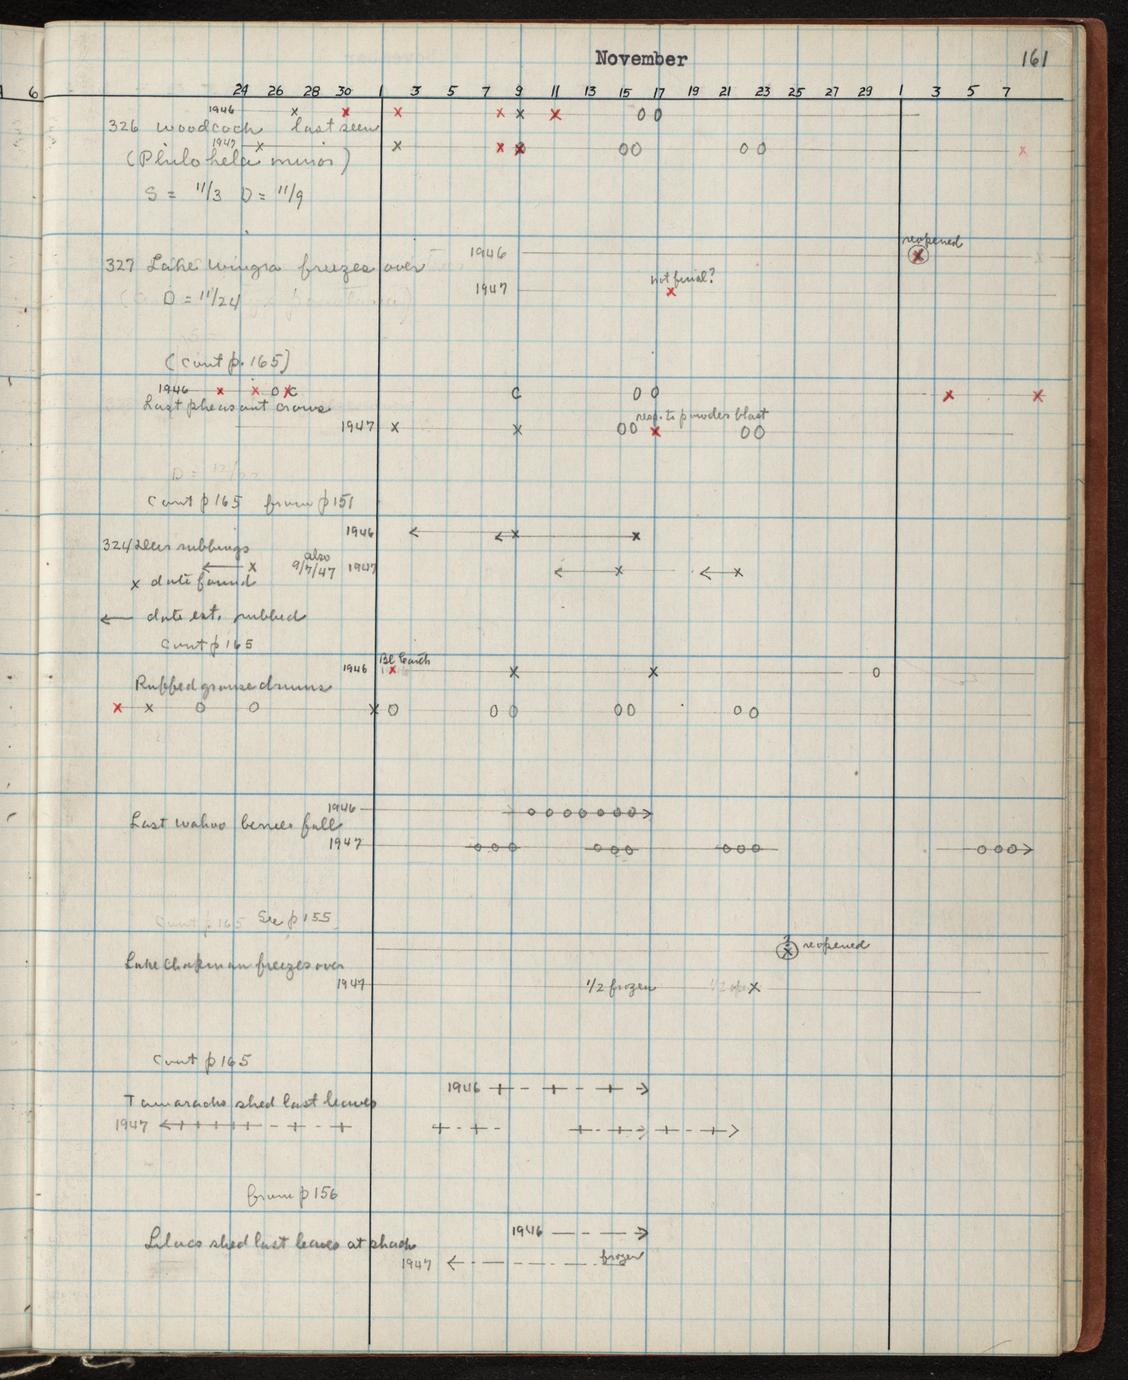 November
161
6
24 26 28 30 1 3 5 7 9 11 13 15 17 19 21 23 25 27 29 1 3 5 7
1946 x x x x x x 0 0
326 Woodcock last seen
1947 x x x x 00 0 0 x
(Philohela minor)
S = 11/3 D = 11/9
reopened
1946 x
327 Lake Wingra freezes over
not final?
1947 x
D = 11/24
(Cont p. 165)
1946 x x 0 x c c 0 0 x x
Last pheasant crows
resp. to powder blast
1947 x x 00 x 00
D =
Cont p 165 from p 151
1946 ← ← x x
324 Deer rubbings
← x also 9/7/47 1947 ← x ← x
x date found
← date est. rubbed
Cont p 165
1946 x x x 0
Ruffed grouse drums
x x 0 0 x 0 0 0 0 0 0 0
1946 0 0 0 0 0 0 0 →
Last wahoo berries fall
1947 0 0 0 0 0 0 0 0 0 0 0 0 →
Cont p 165 See p 155
?
x reopened
Lake Chapman freezes over
1947 1/2 frozen x
Cont p 165
1946 →
Tamaracks shed last leaves
1947 ← → →
from p 156
1946 →
Lilacs shed last leaves at shack
1947 ← frozen